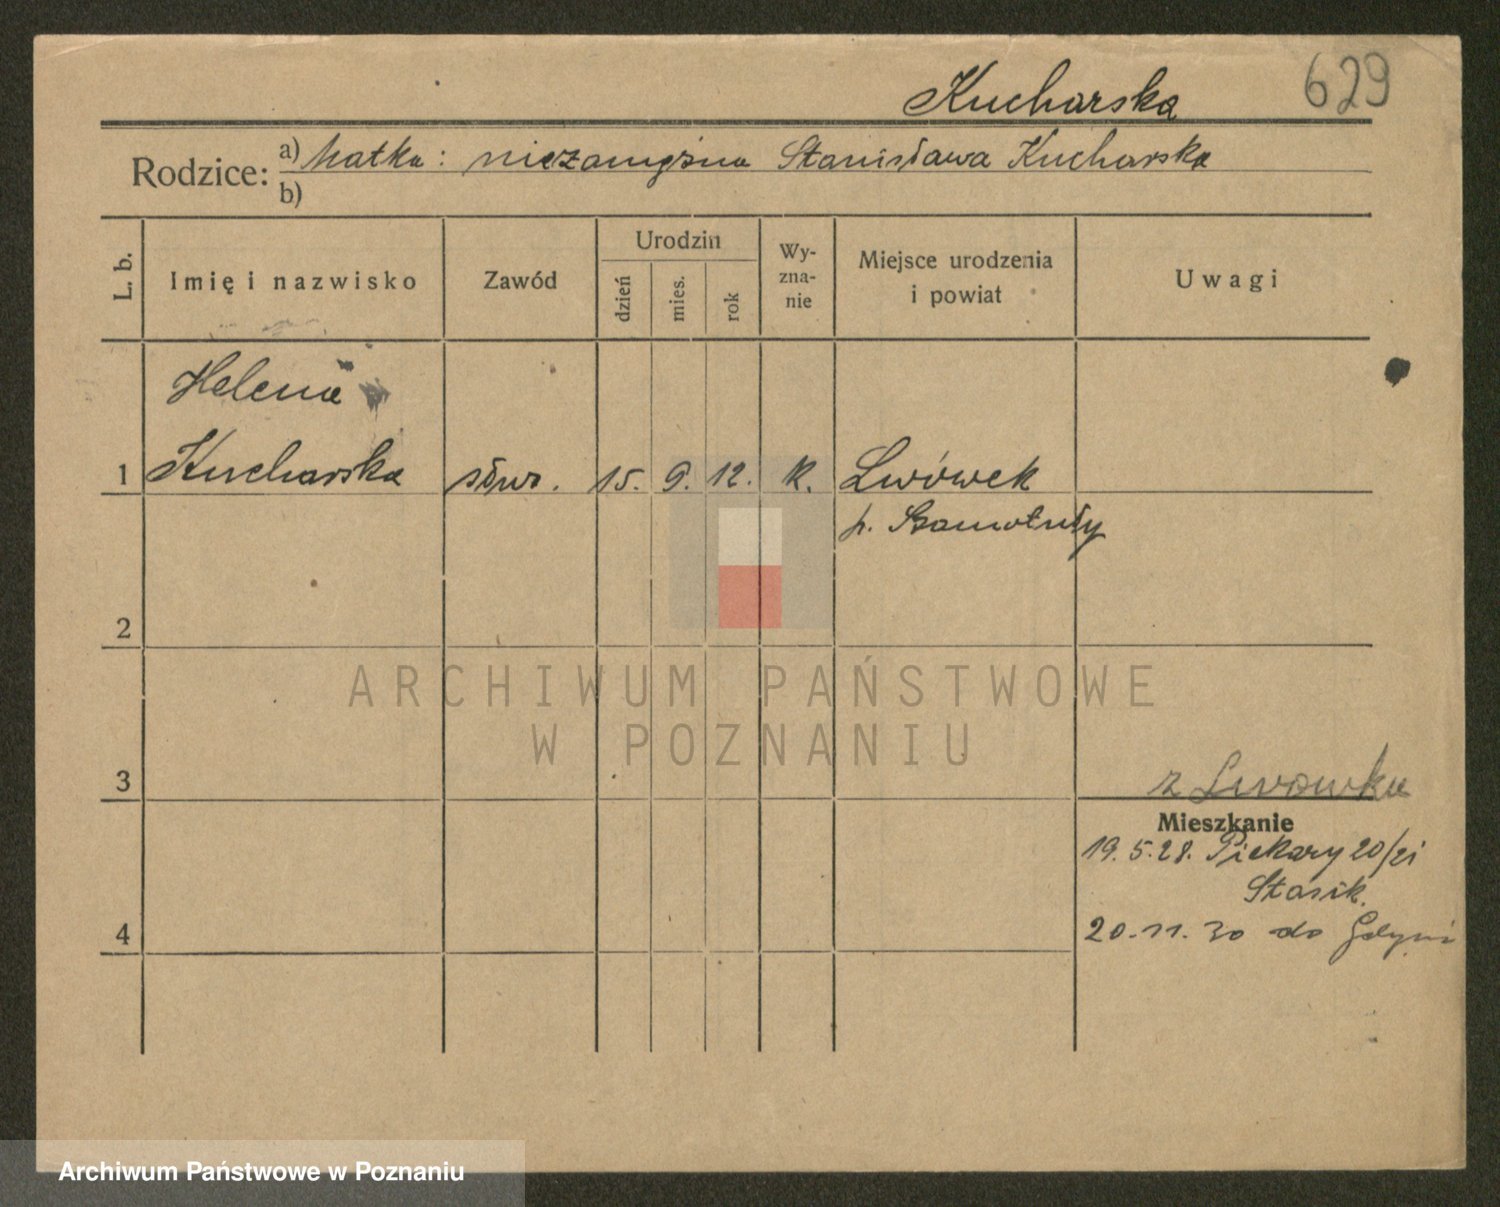 629
Kucharska
Rodzice: a) Matka: niezamężna Stanisława Kucharska
b)
L. b.
Imię i nazwisko
Zawód
Urodzin
dzień
mies.
rok
Wy-
zna-
nie
Miejsce urodzenia
i powiat
Uwagi
Helena
1 Kucharska służ. 15. 9. 12. k. Lwówek
p. Szamotuły
2
3
z Lwówka
Mieszkanie
19.5.28. Piekary 20/21
Stasik.
4
20.11.30 do Gdyni
ARCHIWUM PAŃSTWOWE
W POZNANIU
Archiwum Państwowe w Poznaniu